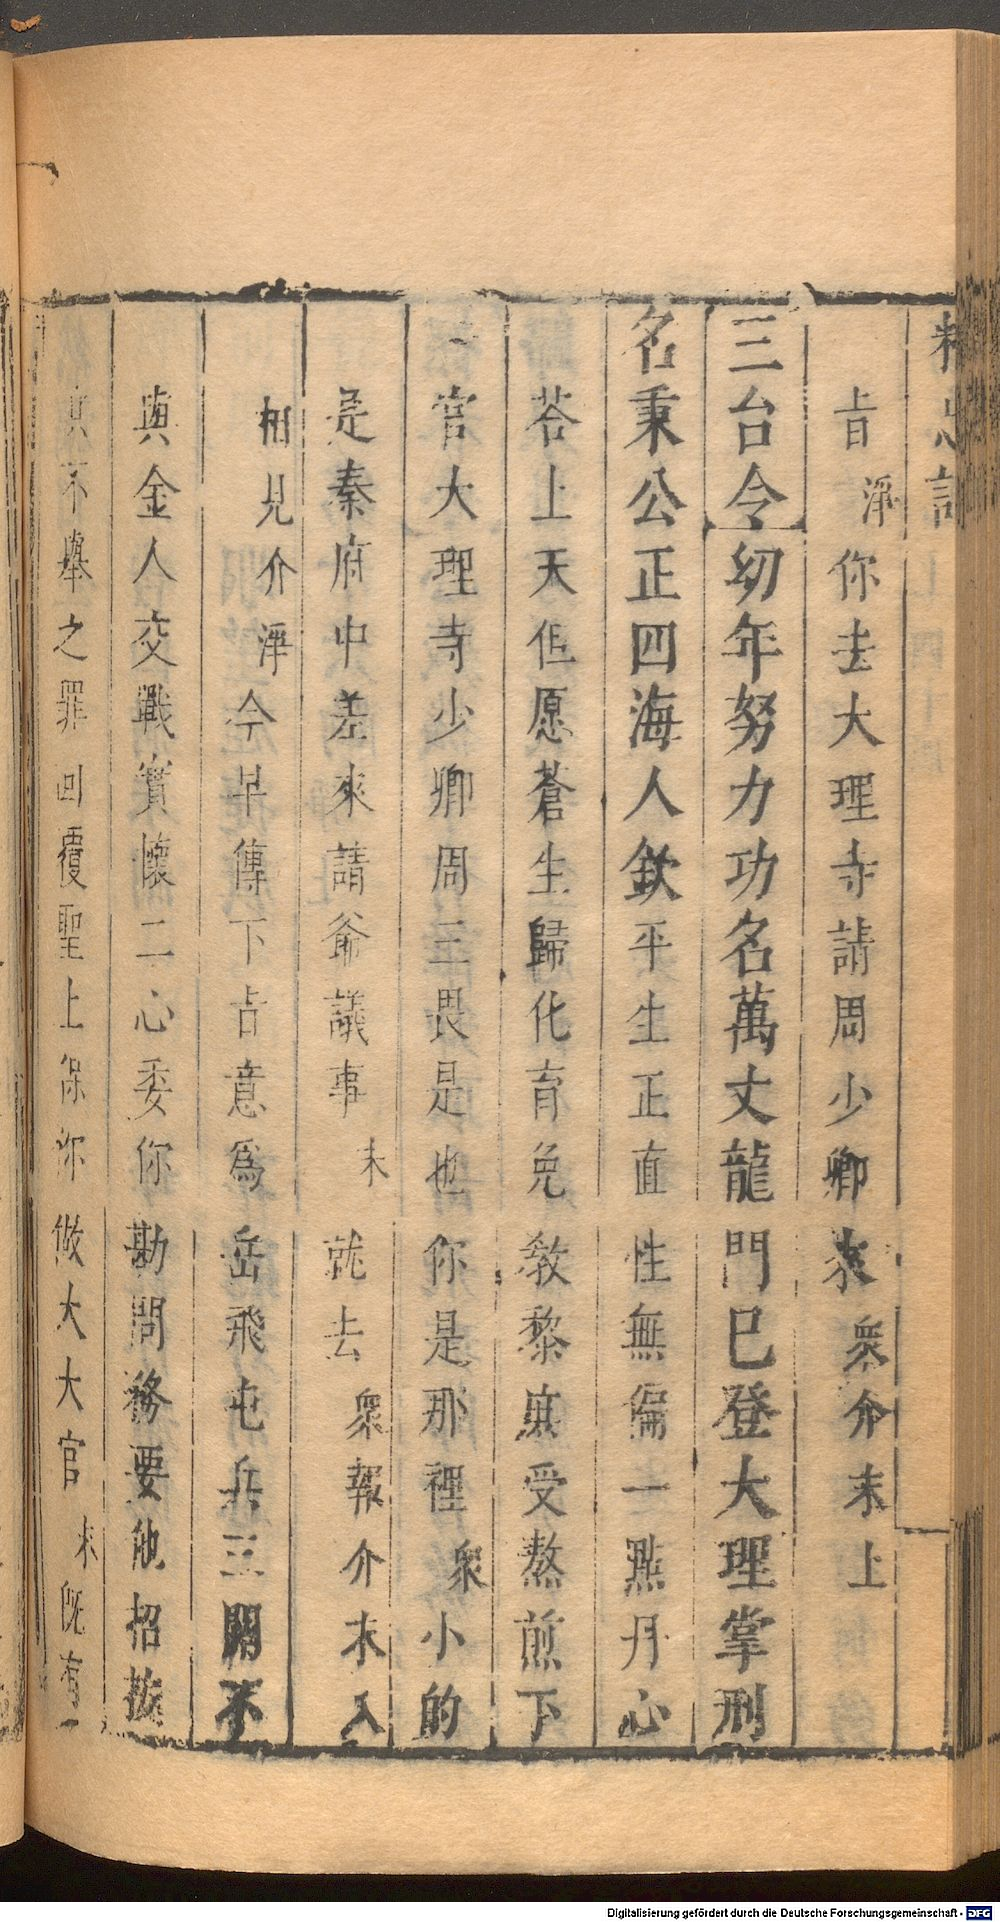 精忠記
旨淨你去大理寺請周少卿來衆介末上
三台令幼年努力功名萬丈龍門已登大理掌刑
名秉公正四海人欽平生正直性無偏一點丹心
荅上天但愿蒼生歸化育免教黎庶受熬煎下
官大理寺少卿周三畏是也你是那裡衆小的
是秦府中差來請爺議事末就去衆報介末入
相見介淨今早傳下旨意爲岳飛屯兵三關不
與金人交戰實懷二心委你勘問務要他招承
眞不舉之罪回覆聖上保你做大大官末旣有
Digitalisierung gefördert durch die Deutsche Forschungsgemeinschaft - DFG